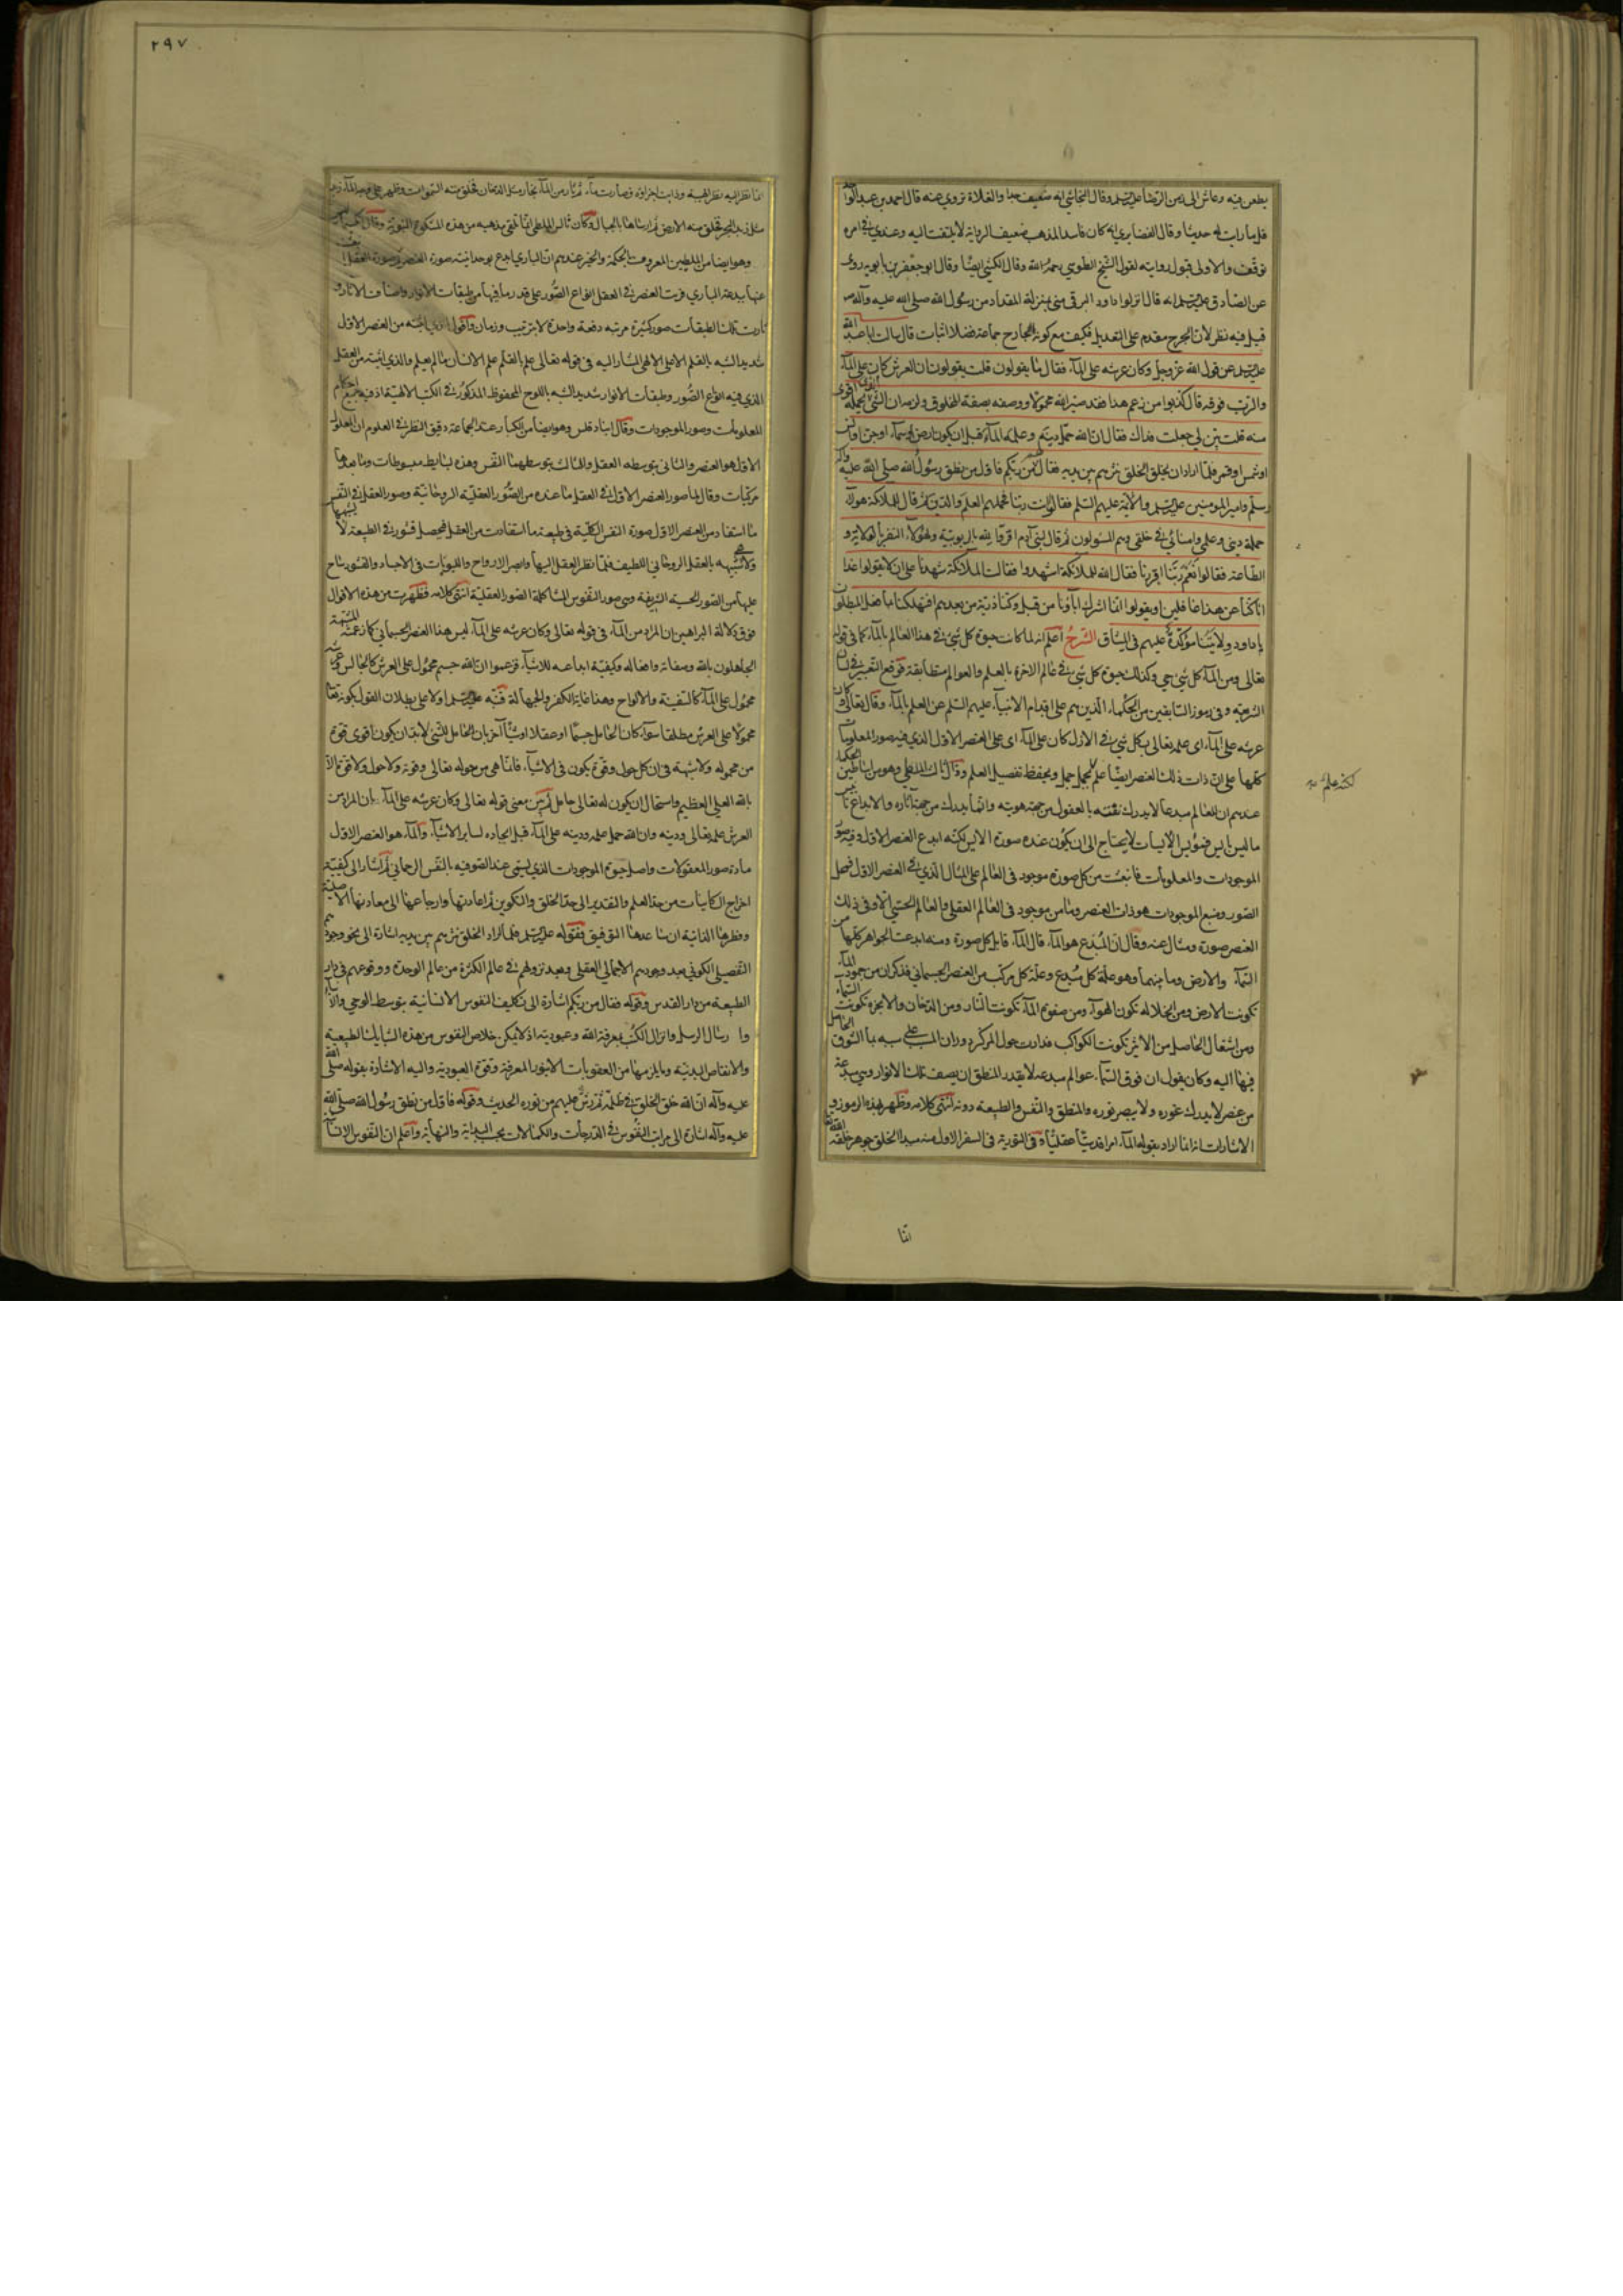 يطعن فيه وعاش الى زمن الرضا عليه السلم وقال النجاشي انه ضعيف جدا والغلاة تروي عنه قال احمد بن عبد الواحد
قل ما رايت له حديثا وقال الغضايري انه كان فاسد المذهب ضعيف الرواية لا يلتفت اليه وعندي في امره
توقف والاولى قبول روايته لقول الشيخ الطوسي رحمه الله وقال الكشي ايضا وقال ابو جعفر بن بابويه روى
عن الصادق عليه السلم انه قال انزلوا داود البرقي مني بمنزلة المقداد من رسول الله صلى الله عليه وآله
قيل فيه نظر لان الجرح مقدم على التعديل فكيف مع كون الجارح جماعة فضلا اثبات قال سالت ابا عبد الله
عليه السلم عن قول الله عز وجل وكان عرشه على المآء فقال ما يقولون قلت يقولون ان العرش كان على المآء
والرب فوقه قال كذبوا من زعم هذا فقد صير الله محمولا ووصفه بصفة المخلوق ولزمه ان الشئ الذي يحمله اقوى
منه قلت بين لي جعلت فداك فقال ان الله حمل دينه وعلمه المآء قبل ان يكون ارض او سمآء او جن او انس
او شمس او قمر فلما اراد ان يخلق الخلق نثرهم بين يديه فقال لهم من ربكم فاول من نطق رسول الله صلى الله عليه وآله
وسلم وامير المومنين عليه السلم والائمة عليهم السلم فقالوا انت ربنا فحملهم العلم والدين ثم قال للملائكة هولاء
حملة ديني وعلمي وامنائي في خلقي وهم المسؤلون ثم قال لبني آدم اقروا لله بالربوبية ولهولاء النفر بالولاية و
الطاعة فقالوا نعم ربنا اقررنا فقال الله للملائكة اشهدوا فقالت الملائكة شهدنا على ان لا يقولوا غدا
انا كنا عن هذا غافلين او يقولوا انما اشرك آباؤنا من قبل وكنا ذرية من بعدهم افتهلكنا بما فعل المبطلون
يا داود ولايتنا مؤكدة عليهم في الميثاق الشرح اعلم انه لما كانت حيوة كل شئ في هذا العالم بالمآء كما في قوله
تعالى ومن المآء كل شئ حي وكذلك حيوة كل شئ في عالم الاخرة بالعلم والعوالم متطابقة فوقع التعبير في لسان
الشرعية وفي رموز السابقين من الحكماء الذين هم على اقدام الانبيآء عليهم السلم عن العلم بالمآء وقال تعالى وكان
عرشه على المآء اى علمه تعالى بكل شئ في الازل كان على المآء اى على العنصر الاول الذي فيه صور المعلومات
كلها على ان ذات ذلك العنصر ايضا علم مجمل ويحفظ تفصيل العلم وقال ثالس الملطي وهو من اساطين الحكما
عندهم ان للعالم مبدعا لا يدرك صفته بالعقول من جهة هويته وانما يدرك من جهة آثاره والابداع تاييس
ما ليس بايس فمؤيس الايسات لا يحتاج الى ان يكون عنده صورة الايس لكنه ابدع العنصر الاول وفيه صور
الموجودات والمعلومات فانبعث من كل صورة موجود في العالم على المثال الذي في العنصر الاول فمحل
الصور ومنبع الموجودات هو ذات العنصر وما من موجود في العالم العقلي والعالم الحسي الا وفي ذلك
العنصر صورة ومثال عنه وقال ان المبدع هو المآء قال المآء قابل كل صورة ومنه ابدعت الجواهر كلها من
السمآء والارض وما بينهما وهو علة كل مبدع وعلة كل مركب من العنصر الجسماني فذكر ان من جمود المآء
تكونت الارض ومن انحلاله تكون الهوآء ومن صفوة المآء تكونت النار ومن الدخان والابخرة تكونت السمآء
ومن اشتعال الحاصل من الاثير تكونت الكواكب فدارت حول المركز دوران المسبب على سببه بالشوق الحاصل
فيها اليه وكان يقول ان فوق السمآء عوالم مبدعة لا يقدر المنطق ان يصف تلك الانوار وهي مبدعة
من عنصر لا يدرك غوره ولا يبصر نوره والمنطق والنفس والطبيعة دونه انتهى كلامه وظهر بهذه الرموز و
الاشارات انه انما اراد بقوله المآء امرا قدسيا عقليا وفي التورية في السفر الاول منه مبدا الخلق جوهر خلقه الله
لكنه علم
انما
٢٩٧
نظر اليه نظر الهيبة وذابت اجزاؤه فصارت مآء ثم ثار من المآء بخار مثل الدخان فخلق منه السموات وظهر على وجه المآء زبد
مثل زبد البحر فخلق منه الارض ثم ارساها بالجبال وكان ثالس الملطي انما تلقى مذهبه من هذه المشكوة النبوية وقال
وهو ايضا من الملطيين المعروف بالحكمة والخير عندهم ان الباري ابدع بوحدانيته صورة العنصر ثم صورة العقل
عنها ببدعة الباري فرتب العنصر في العقل انواع الصور على قدر ما فيها من طبقات الانوار واصناف الاثار و
صارت تلك الطبقات صور كثيرة مرتبة دفعة واحدة لا بترتيب وزمان واقول من العنصر الاول
شديد الشبه بالقلم الاعلى الالهي المشار اليه في قوله تعالى علم بالقلم علم الانسان ما لم يعلم والذي اثبته من العقل
الذي فيه انواع الصور وطبقات الانوار شديد الشبه باللوح المحفوظ المذكور في الكتب الالهية اذ فيه جميع احكام
المعلومات وصور الموجودات وقال انبادقلس وهو ايضا من الكبار عند الجماعة دقيق النظر في العلوم ان المعلول
الاول هو العنصر والثاني بتوسطه العقل والثالث بتوسطهما النفس وهذه بسايط مبسوطات وما بعدها
مركبات وقال لما صور العنصر الاول في العقل ما عنده من الصور العقلية الروحانية وصور العقل في النفس
ما استفاد من العنصر الاول صورة النفس الكلية في طبيعة ما استفادت من العقل فحصل قشور في الطبيعة لا يشبهها
ولا هي شبيهة بالعقل الروحاني اللطيف فلما نظر العقل اليها وابصر الارواح واللبوب في الاجساد والقشور ساح
عليها من الصور الحسنة الشريفة وهي صور النفوس المشاكلة الصور العقلية انتهى كلامه فظهرت من هذه الاقوال
فوق دلالة البراهين ان المراد من المآء في قوله تعالى وكان عرشه على المآء ليس هذا العنصر الجسماني كما زعمته المشبهة
الجاهلون بالله وصفاته وافعاله وكيفية ابداعه للاشيآء فزعموا ان الله جسم محمول على العرش كالجالس وعرشه
محمول على المآء كالسفينة والالواح وهذا غاية الكفر والجهالة فنبه عليه السلم اولا على بطلان القول بكونه تعالى
محمولا على العرش مطلقا سوآء كان الحامل جسما او عقلا او شيئا آخر بان الحامل للشئ لابد ان يكون اقوى قوة
من محموله ولا شبهة في ان كل حول وقوة يكون في الاشيآء فانما هي من حوله تعالى وقوته ولا حول ولا قوة الا
بالله العلي العظيم واستحال ان يكون له تعالى حامل ثم بين معنى قوله تعالى وكان عرشه على المآء بان المراد من
العرش علمه تعالى ودينه وان الله حمل علمه ودينه على المآء قبل ايجاده لساير الاشيآء والمآء هو العنصر الاول
مادة صور المعقولات واصل حيوة الموجودات الذي يسمى عند الصوفية بالنفس الرحماني ثم اشار الى كيفية
اخراج الكاينات من حد العلم والتقدير الى حد الخلق والتكوين ثم اعادتها وارجاعها الى معادنها الاصلية
وفطرها الذاتية ان ساعدها التوفيق فقوله عليه السلم فلما اراد الخلق نثرهم بين يديه اشارة الى نحو وجودهم
التفصيلي الكوني بعد وجودهم الاجمالي العقلي وبعد نزولهم في عالم الكثرة من عالم الوحدة ووقوعهم في دار
الطبيعة من دار القدس وقوله فقال من ربكم اشارة الى تكليف النفوس الانسانية بتوسط الوحي والانبآء
وارسال الرسل وانزال الكتب بمعرفة الله وعبوديته اذ لا يمكن خلاص النفوس من هذه الشبايك الطبيعية
والاقفاص البدنية وما يلزمها من العقوبات الا بنور المعرفة وقوة العبودية واليه الاشارة بقوله صلى الله
عليه وآله ان الله خلق الخلق في ظلمة ثم رش عليهم من نوره الحديث وقوله فاول من نطق رسول الله صلى الله
عليه وآله اشارة الى مراتب النفوس في الدرجات والكمالات بحسب البداية والنهاية واعلم ان النفوس الانسانية